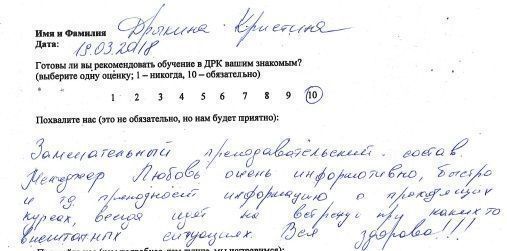 Имя и Фамилия Дрыкина Кристина
Дата: 19.03.2018
Готовы ли вы рекомендовать обучение в ДРК вашим знакомым?
(выберите одну оценку; 1 – никогда, 10 – обязательно)
1 2 3 4 5 6 7 8 9 10
Похвалите нас (это не обязательно, но нам будет приятно):
Замечательный преподавательский состав.
Менеджер Любовь очень информативно, быстро
и преподносит информацию о проходящих
курсах, всегда идёт на встречу при каких то
внештатных ситуациях. Все здорово!!!